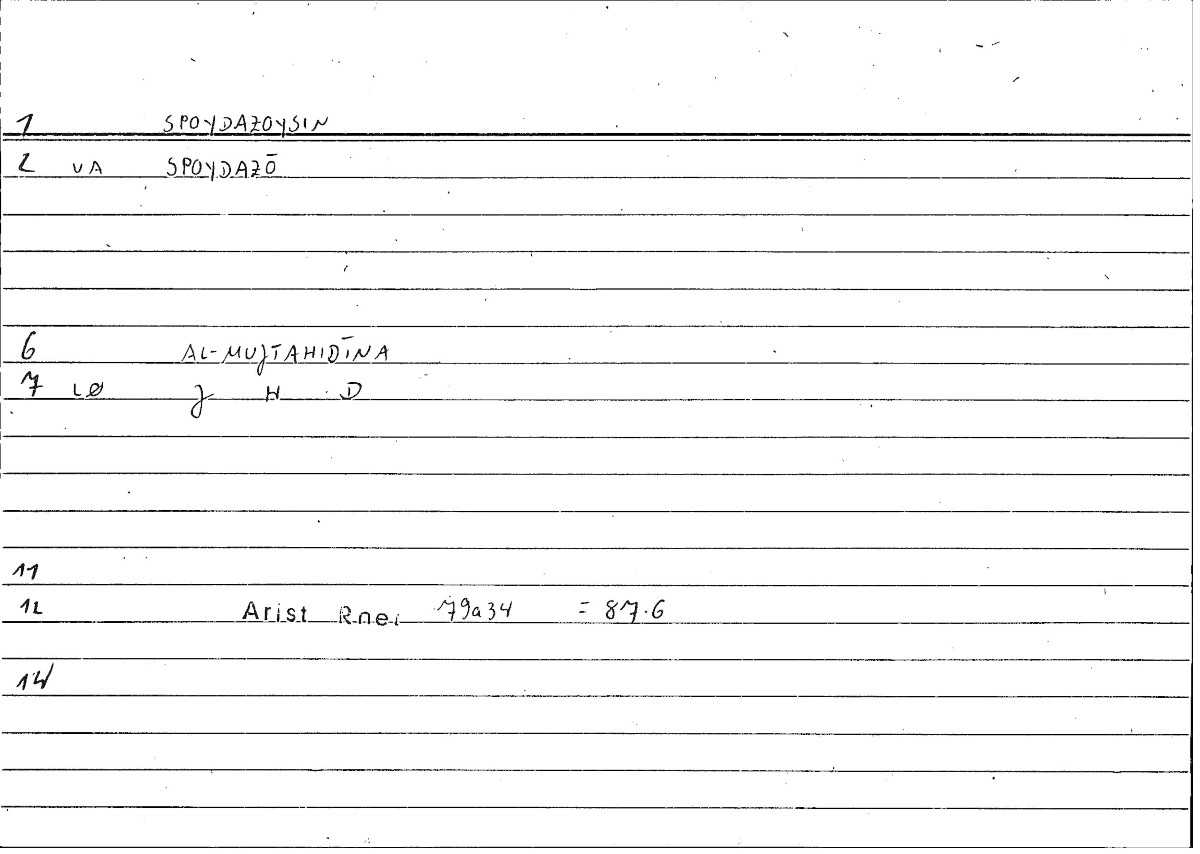 1 SPOYDAZOYSIN
2 VA SPOYDAZŌ
6 AL-MUJTAHIDĪNA
7 LØ J H D
11
12 Arist Rhet 79a34 = 87.6
14